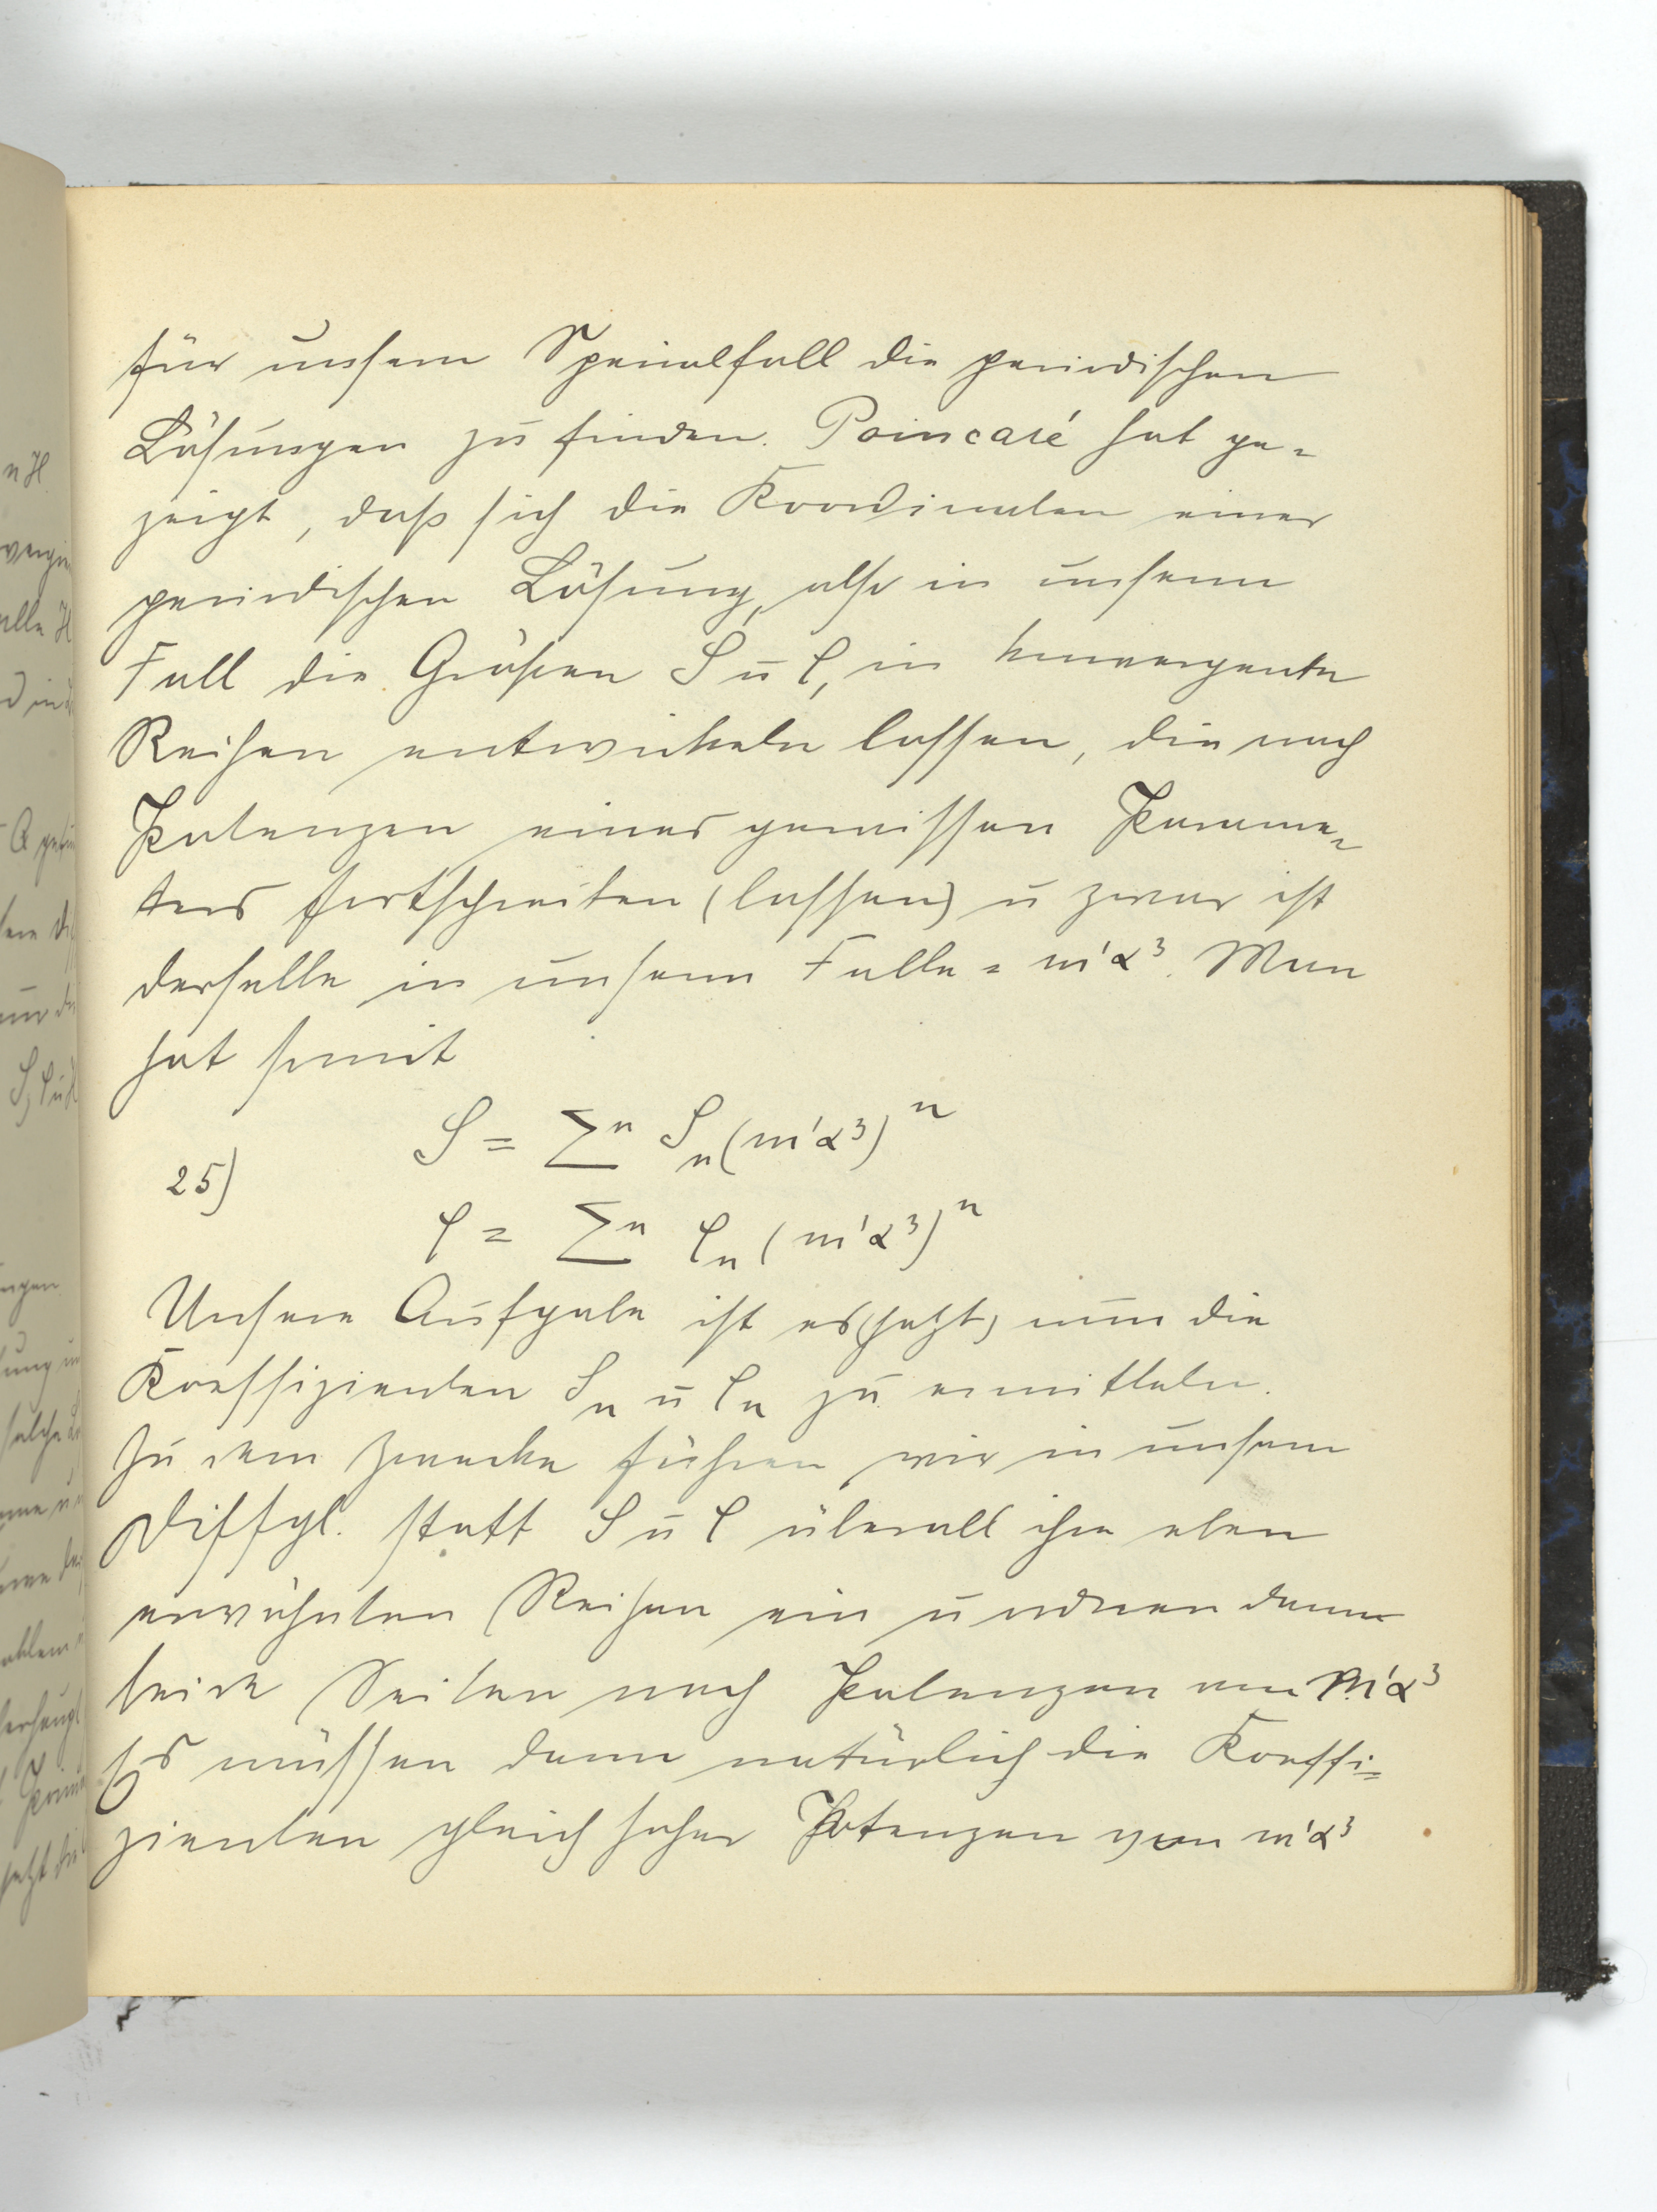 für unsern Spezialfall die periodischen
Lösungen zu finden. Poincaré hat ge-
zeigt, daß sich die Koordinaten einer
periodischen Lösung, also in unserm
Fall die Größen S u φ, in konvergente
Reihen entwickeln lassen, die nach
Potenzen eines gewissen Parame-
ters fortschreiten (lassen) u zwar ist
derselbe in unserm Falle = m'α³. Man
hat somit
S = Σⁿ Sₙ (m'α³)ⁿ
25)
φ = Σⁿ φₙ (m'α³)ⁿ
Unsere Aufgabe ist es (jetzt) nun die
Koeffizienten Sₙ u φₙ zu ermitteln.
Zu dem Zwecke führen wir in unsern
Diffgl. statt S u φ überall ihre eben
erwähnten Reihen ein u ordnen dann
beide Seiten nach Potenzen von m'α³
Es müssen dann natürlich die Koeffi-
zienten gleich hoher Potenzen von m'α³